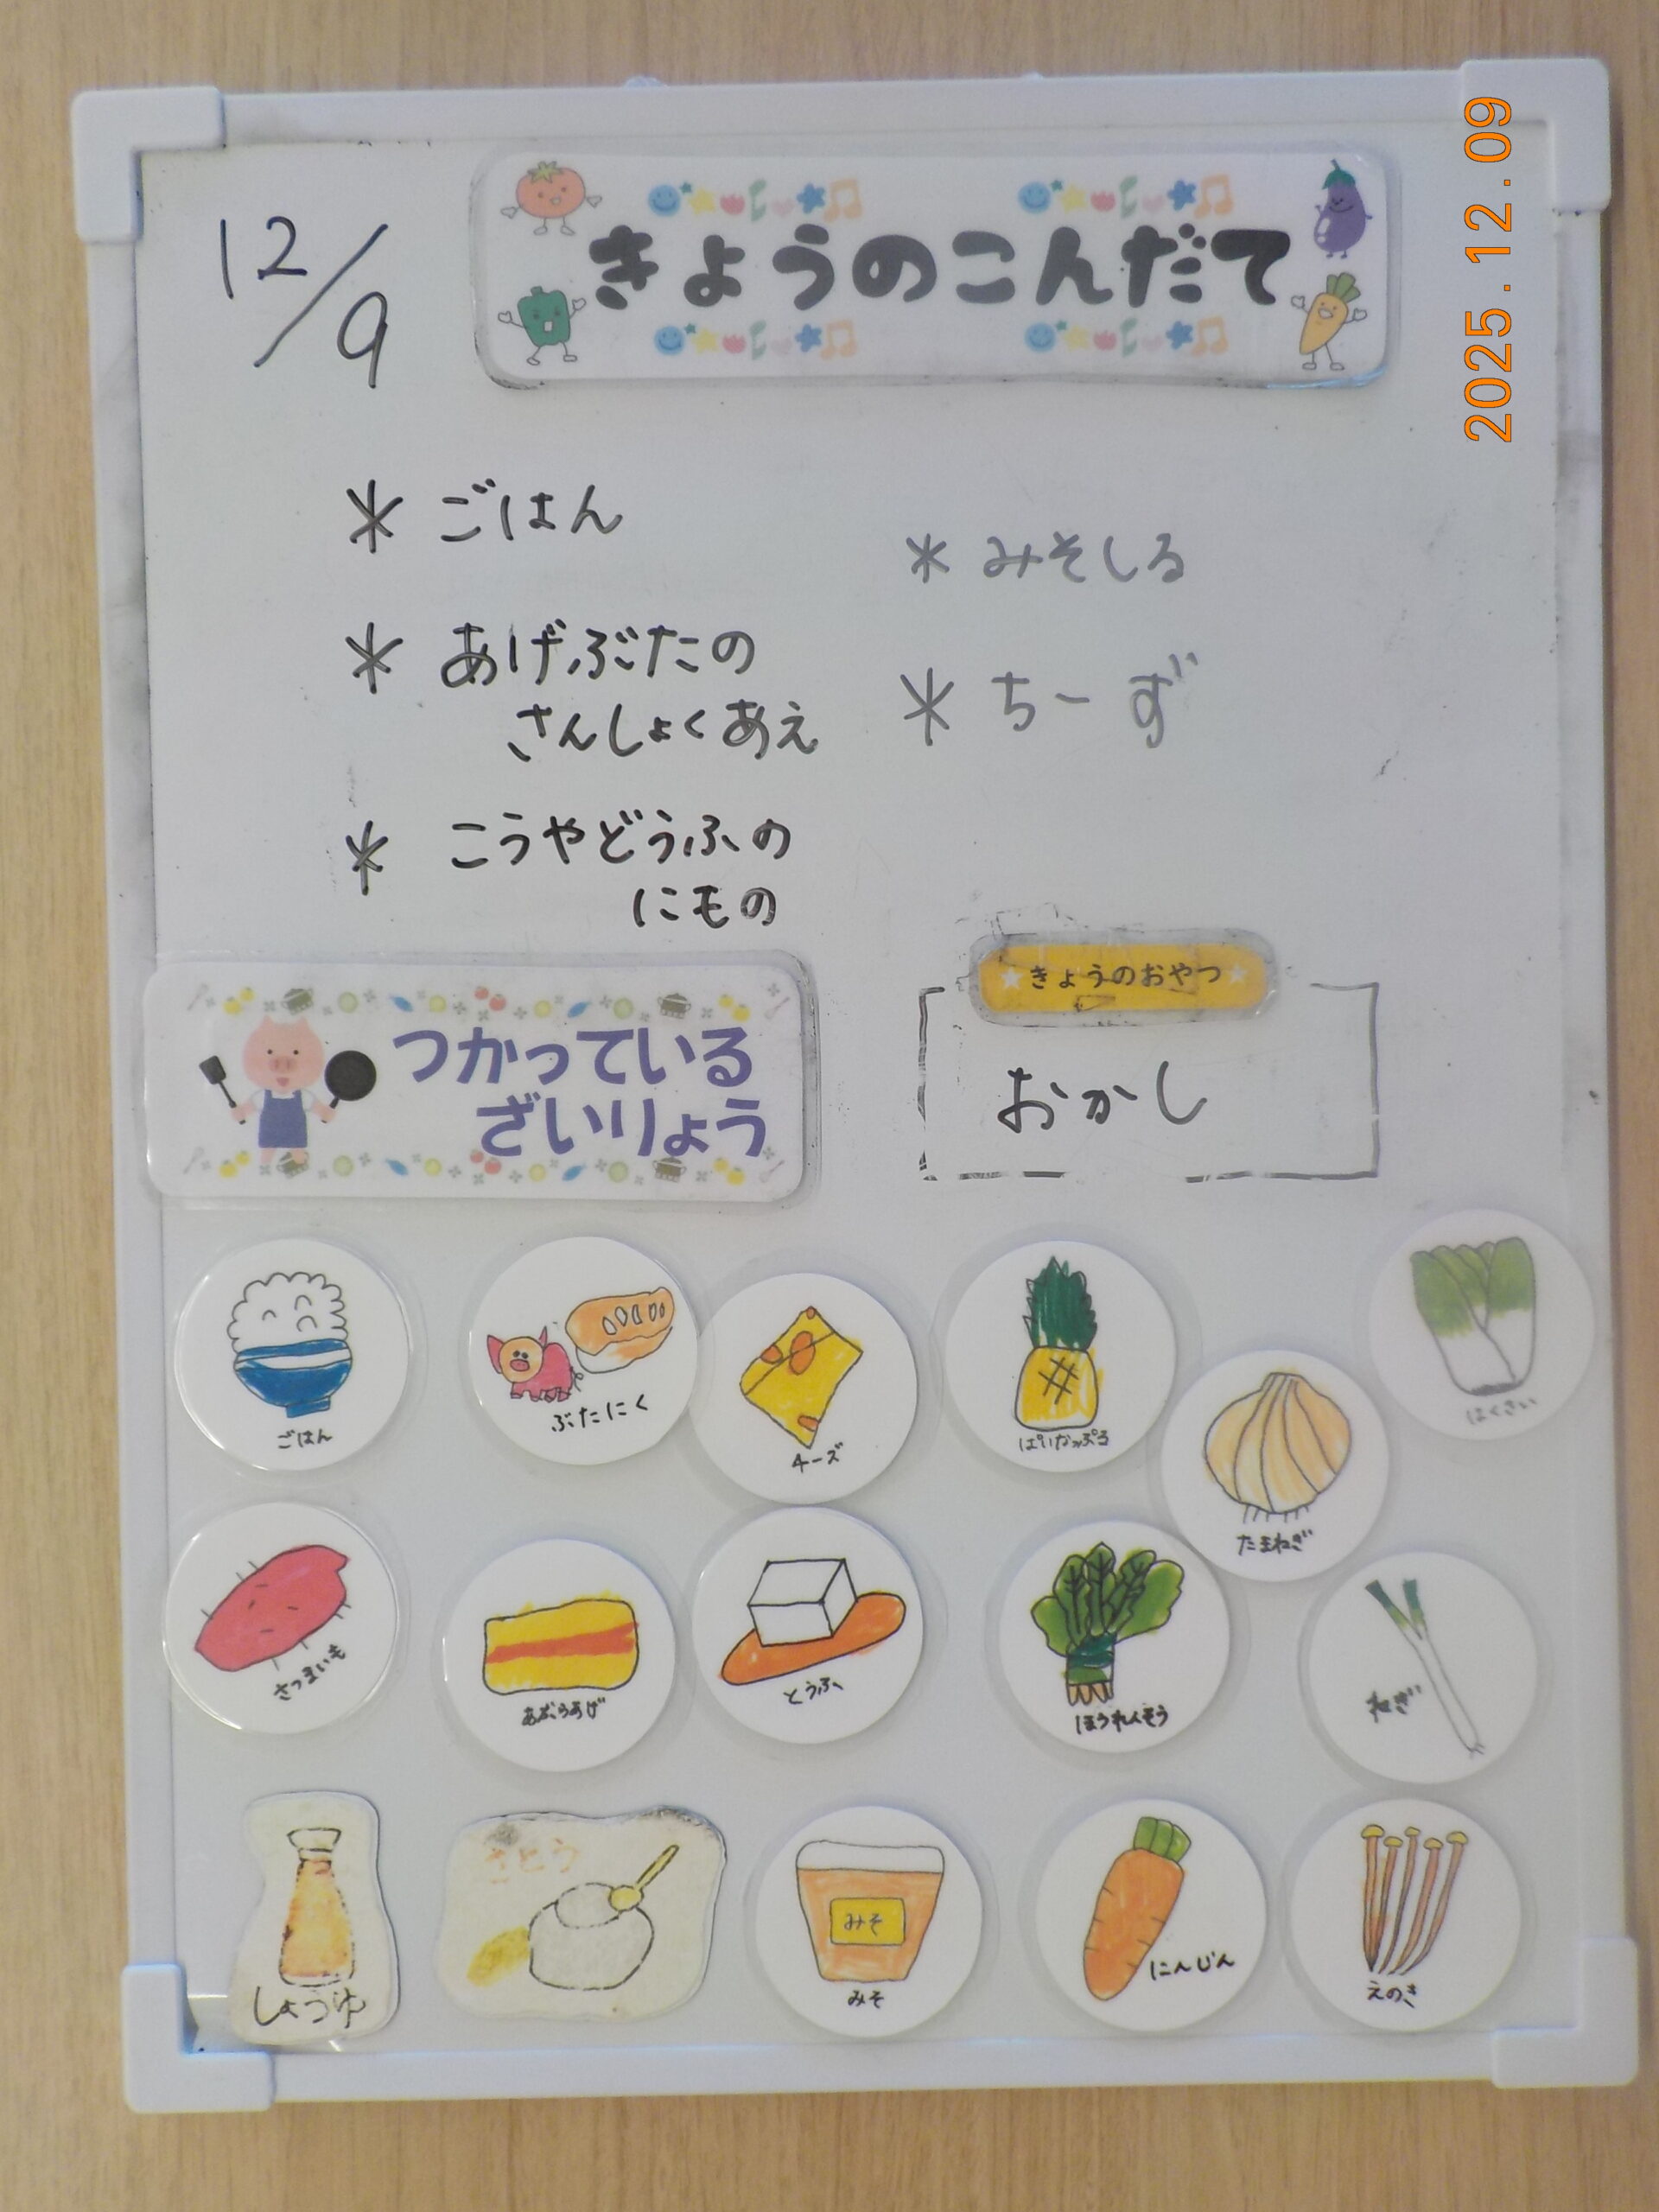 2025.12.09
12/9
きょうのこんだて
* ごはん
* あげぶたの
さんしょくあえ
* こうやどうふの
にもの
* みそしる
* ちーず
きょうのおやつ
おかし
つかっている
ざいりょう
ごはん
ぶたにく
チーズ
ぱいなっぷる
たまねぎ
はくさい
さつまいも
あぶらあげ
とうふ
ほうれんそう
ねぎ
しょうゆ
さとう
みそ
みそ
にんじん
えのき